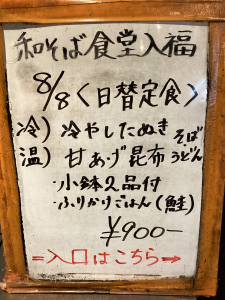 和そば食堂入福
8/8〈日替定食〉
冷）冷やしたぬきそば
温）甘あげ昆布うどん
・小鉢2品付
・ふりかけごはん（鮭）
¥900-
⇒入口はこちら→